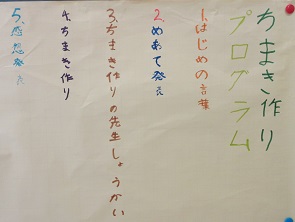 ちまき作り
プログラム
1.はじめの言葉
2.めあて発表
3.ちまき作りの先生しょうかい
4.ちまき作り
5.感想発表